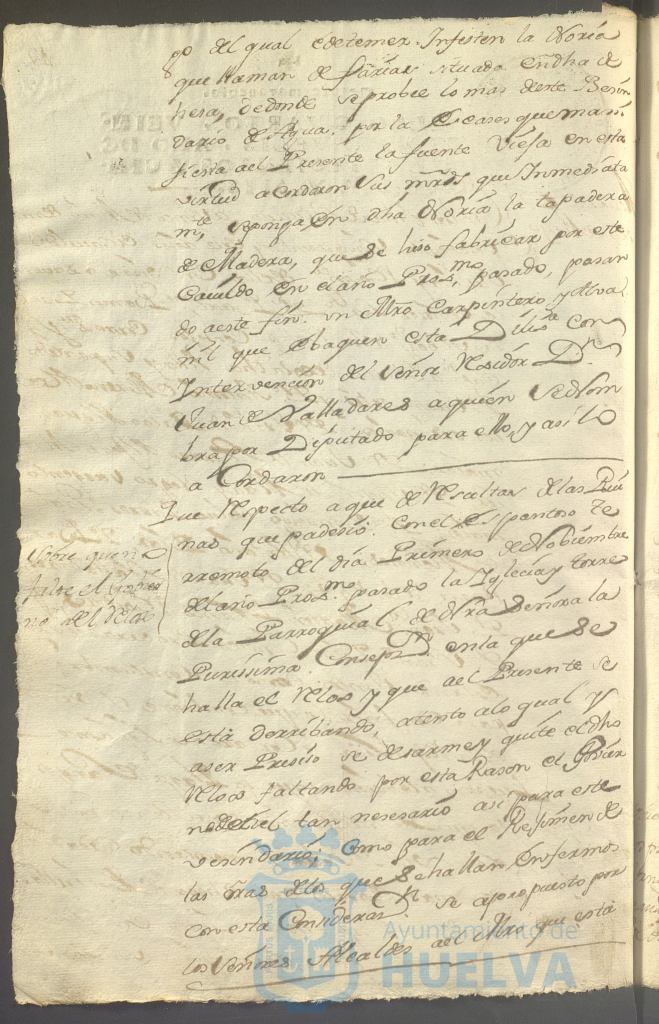 go del qual es de temer Infesten la Noria
que llaman de Farias situada en dha de
hesa, de donde se probee lo mas deste Besin
dario de Agua por la Escases que mani
fiesta al Presente la fuente Vieja en esta
virtud acordaron sus mrds que Inmediata
mte se ponga en dha Noria la tapadera
de Madera, que se hiso fabricar por este
Cavildo en el año Proxmo pasado, pasan
do a este fin un Mro Carpintero y Alva
nil que Ebaquen esta Dilixa con
Intervencion del Señor Residor Dn
Juan de Valladares a quien se Nom
bra por Diputado para ello, y asi lo
a Cordaron
Que Respecto a que de Resultas de las Rui
nas que padesio con el Espantoso Te
rremoto del dia Primero de Nobiembre
del año Proxmo pasado la Iglecia y torre
de la Parroquial de Nra Señora la
Purissima Consepn en la que se
halla el Relox y que al Presente se
està derribando, atento a lo qual y
a ser Presiso se desarme y quite el dho
Relox faltando por esta Rason el Govier
no del tan nesesario asi para este
vesindario, como para el Regimen de
las oras de los que se hallan Enfermos
con esta Considerasn se a propuesto por
los Señores Alcaldes al Mro que està
Sobre que no
falte el Govier
no del Relox
Ayuntamiento de
HUELVA